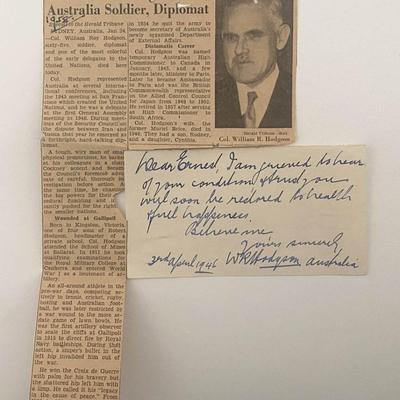 1958
Australia Soldier, Diplomat
Special to the Herald Tribune
SYDNEY, Australia, Jan. 24.
—Col. William Roy Hodgson,
sixty-five, soldier, diplomat
and one of the most colorful
of the early delegates to the
United Nations, died here
today.
Col. Hodgson represented
Australia at several interna-
tional conferences, including
the 1945 meeting at San Fran-
cisco which created the United
Nations, and he was a delegate
at the first General Assembly
meeting in 1946. During meet-
ings of the Security Council on
the dispute between Iran and
Russia that year he emerged as
a forthright, hard-talking dip-
lomat.
A tough, wiry man of small
physical proportions, he barked
at his colleagues in a sharp
Cockney accent and became
the Council's foremost advo-
cate of careful, thorough in-
vestigation before action. At
the same time, he championed
big powers for their
fumbling and
family pushed for the rights of
the smaller nations.
Wounded at Gallipoli
Born in Kingston, Victoria,
one of four sons of Robert
Hodgson, headmaster of a
private school, Col. Hodgson
attended the School of Mines
at Ballarat. In 1911 he took
qualifying examinations for
the Royal Military College at
Canberra, and entered World
War I as a lieutenant of ar-
tillery.
An all-around athlete in the
pre-war days, competing ac-
tively in tennis, cricket, rugby,
boxing and Australian foot-
ball, he was later restricted by
a war wound to the more se-
date game of lawn bowls. He
was the first artillery observer
to scale the cliffs at Gallipoli
in 1915 to direct fire by Royal
Navy battleships. During that
action, a sniper's bullet in the
left hip invalided him out of
the war.
He won the Croix de Guerre
with palm for his bravery but
the shattered hip left him with
a limp. He called it his "legacy
in the cause of peace." From
in 1934 he quit the army to
become secretary of Australia's
newly organized Department
of External Affairs.
Diplomatic Career
Col. Hodgson was named
temporary Australian High
Commissioner to Canada in
January, 1945, and a few
months later, Minister to Paris.
Later he became Ambassador
to Paris and was the British
Commonwealth representative
on the Allied Control Council
for Japan from 1949 to 1952.
He retired in 1957 after serving
as High Commissioner to
South Africa.
Col. Hodgson's wife, the
former Muriel Brice, died in
1946. They had a son, Rodney,
and a daughter, Cynthia.
Herald Tribune
Col. William R. Hodgson
Dear Ernest, I am grieved to hear
of your condition & trust you
will soon be restored to health
& full happiness.
Believe me
Yours sincerely
3rd April 1946 WR Hodgson Australia